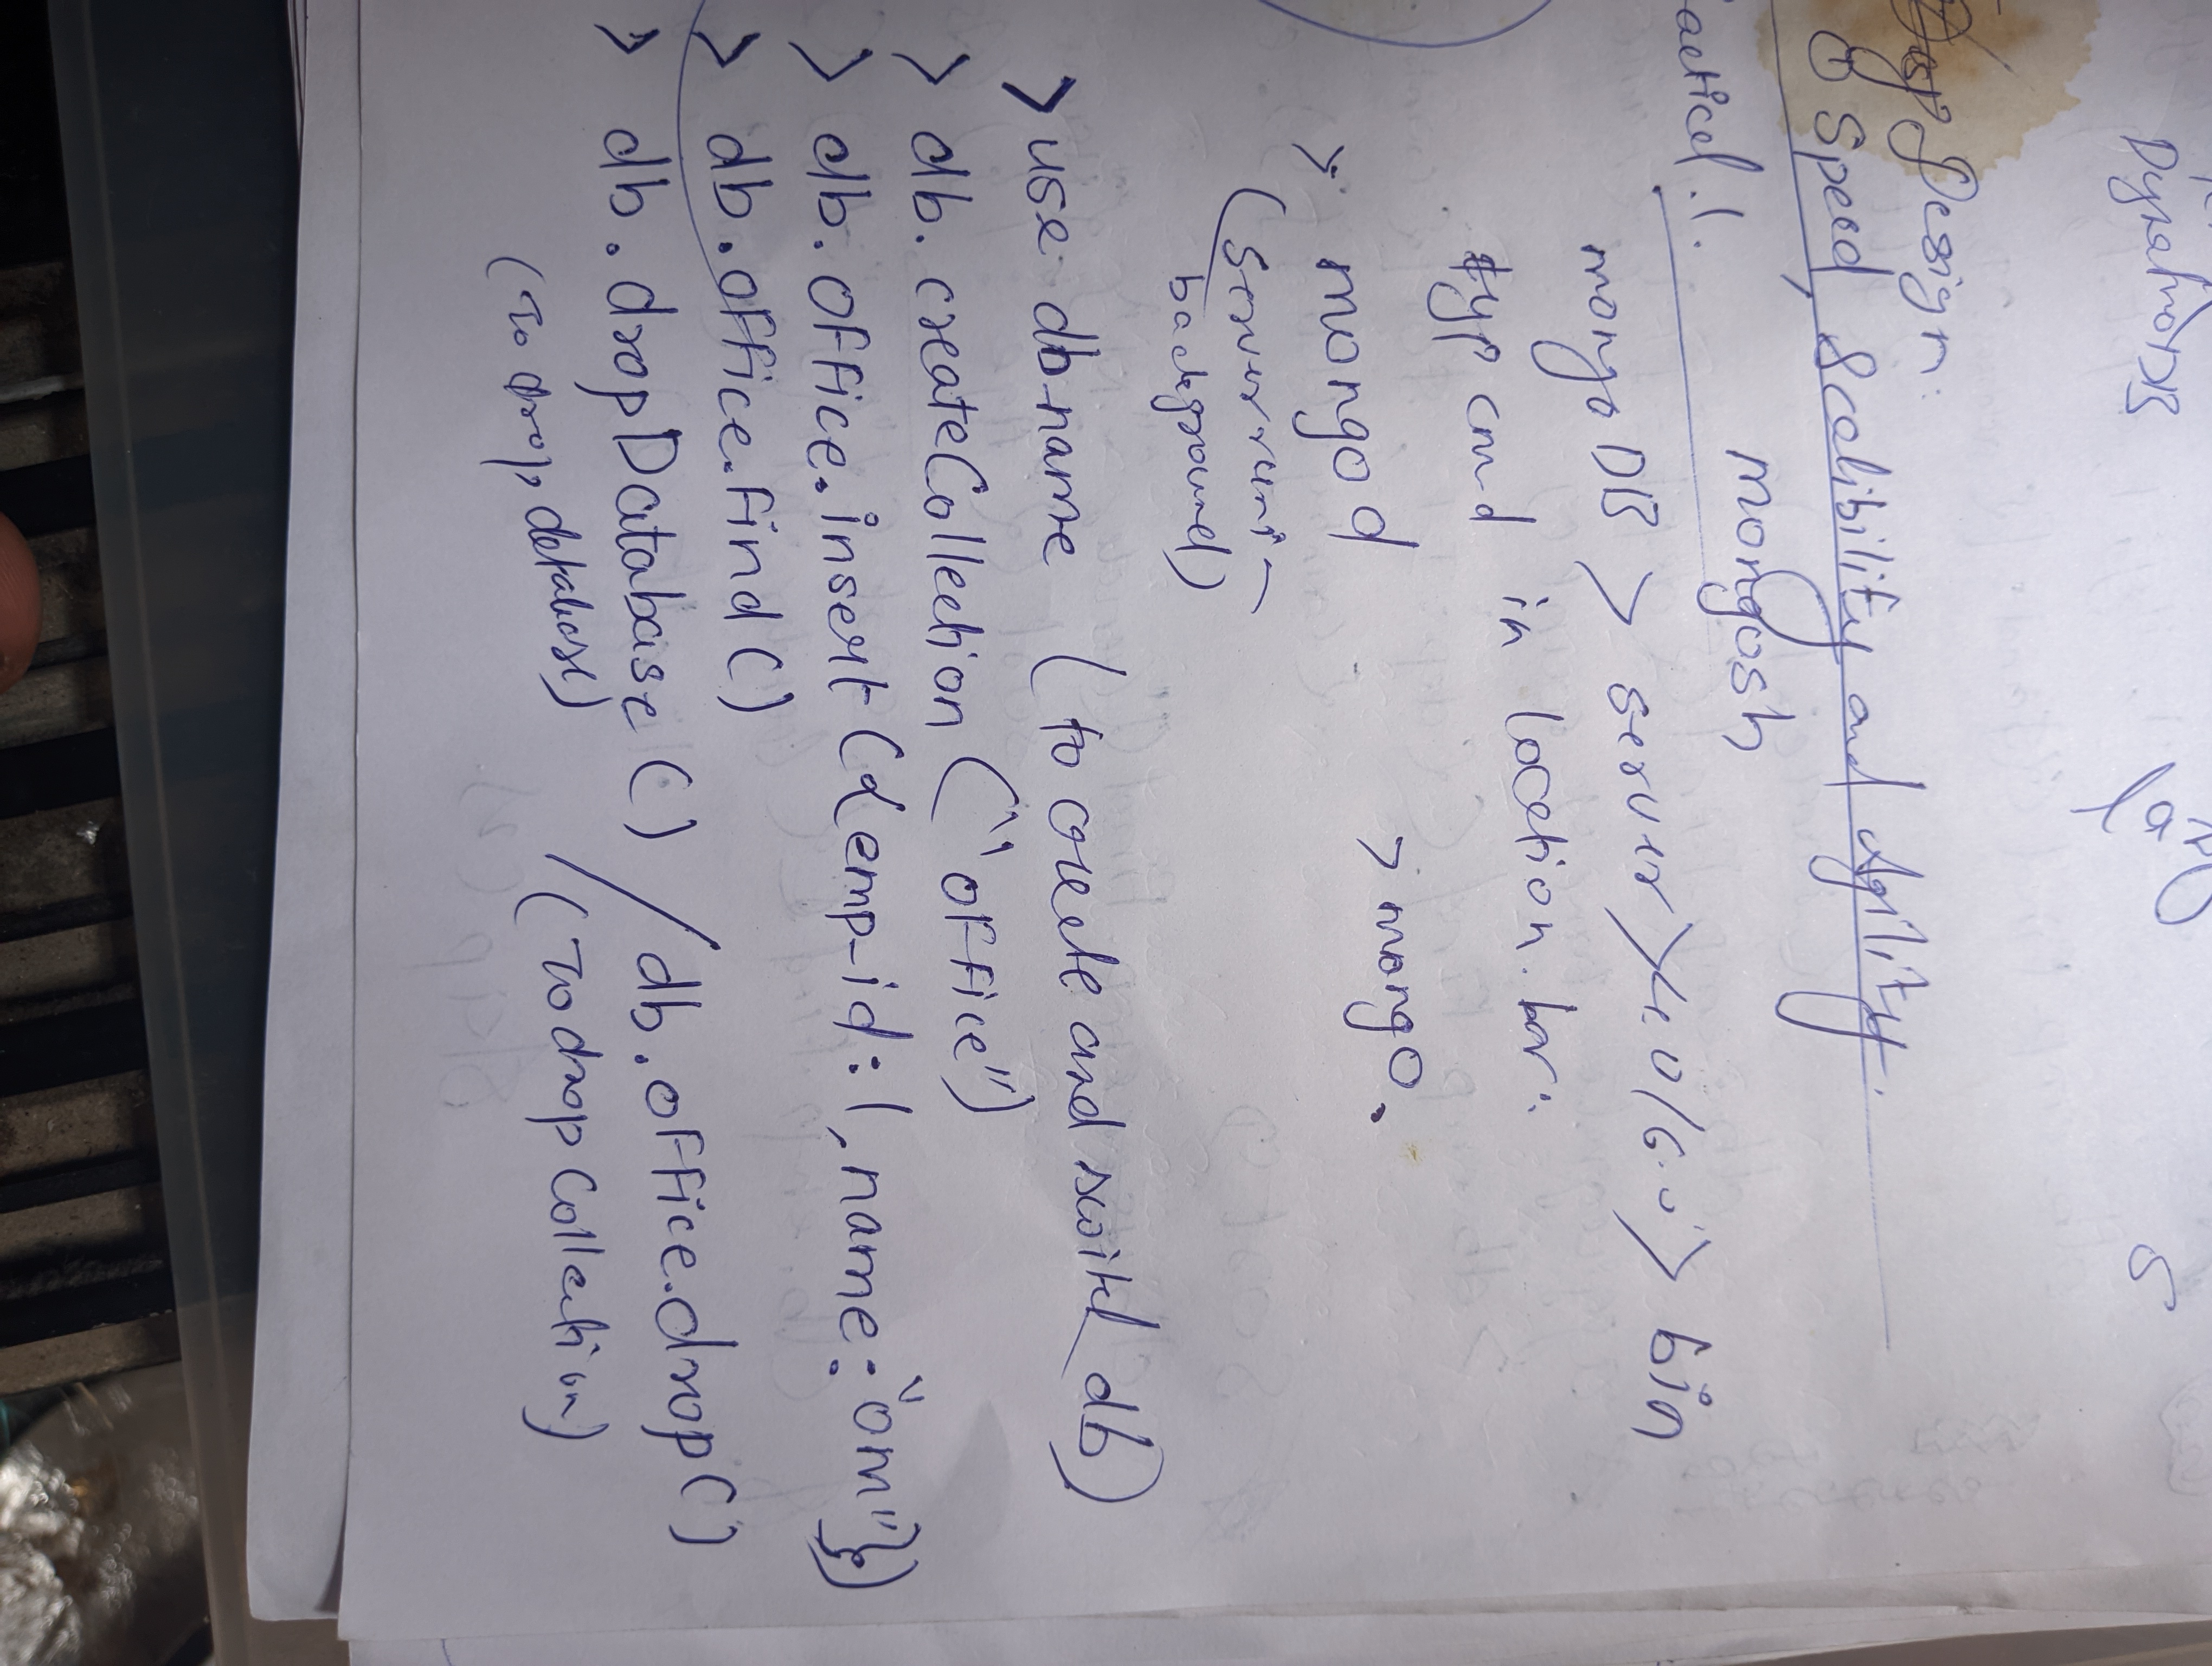 DynamoDB
5
Design:
① Speed, Scalibility and Agility.
mongosh
actical.1.
mongoDB > server > 4.0/6.0 > bin
typ cmd in location bar.
> mongod > mongo.
(Server run in
background)
> use dbname (to create and switch db)
> db.createCollection ("office")
> db.office.insert ({emp-id:1, name:"om"})
> db.office.find()
> db.dropDatabase () / db.office.drop()
(To drop database) (To drop collection)